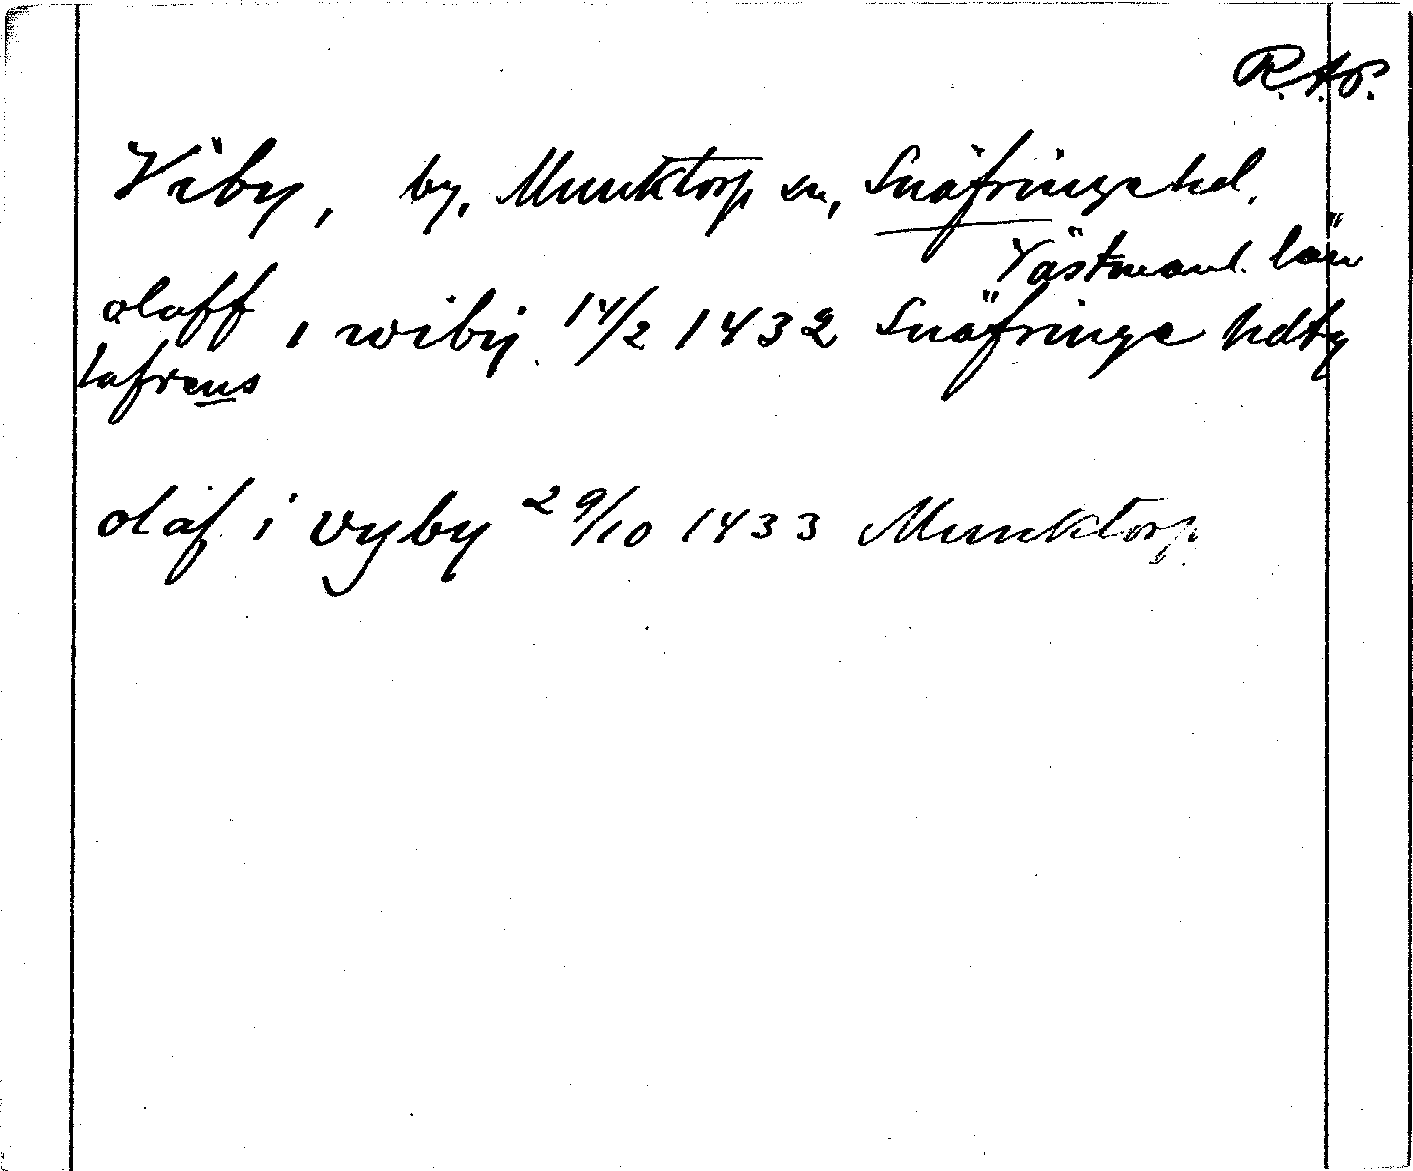 R.A.P.
Viby, by, Munktorp sn, Snäfringe hd.
Västmanl. län
olaff i wibij 14/2 1432 Snäfringe hdtg
lafrens
olaf i vyby 29/10 1433 Munktorp